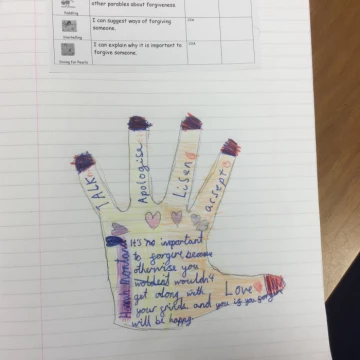 other parables about forgiveness.
Reading
I can suggest ways of forgiving
someone.
I can explain why it is important to
forgive someone.
Diving for Pearls
TALK
Apologise
Lisen
arsept
Love
It's no important
to forgive because
otherwise you
woldent wouldn't
get along with
your frinds and you if you forgive
will be happy.